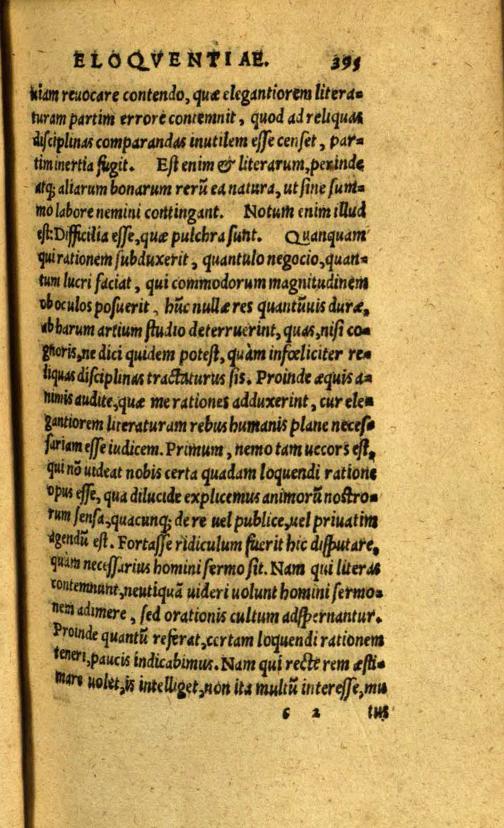 ELOQVENTIAE. 395
uiam reuocare contendo, quæ elegantiorem litera-
turam partim errore contemnit, quod ad reliquas
disciplinas comparandas inutilem esse censet, par-
tim inertia fugit. Est enim & literarum, perinde
atq; aliarum bonarum rerũ ea natura, ut sine sum-
mo labore nemini contingant. Notum enim illud
est: Difficilia esse, quæ pulchra sunt. Quanquam
qui rationem subduxerit, quantulo negocio, quan-
tum lucri faciat, qui commodorum magnitudinem
ob oculos posuerit, hũc nullæ res quantũuis duræ,
ab harum artium studio deterruerint, quas, nisi co-
gnoris, ne dici quidem potest, quàm infœliciter re-
liquas disciplinas tractaturus sis. Proinde æquis a-
nimis audite, quæ me rationes adduxerint, cur ele-
gantiorem literaturam rebus humanis plane neces-
sariam esse iudicem. Primum, nemo tam uecors est,
qui nõ uideat nobis certa quadam loquendi ratione
opus esse, qua dilucide explicemus animorũ nostro-
rum sensa, quacunq; de re uel publice, uel priuatim
agendũ est. Fortasse ridiculum fuerit hic disputare,
quàm necessarius homini sermo sit. Nam qui literas
contemnunt, neutiquã uideri uolunt homini sermo-
nem adimere, sed orationis cultum adspernantur.
Proinde quantũ referat, certam loquendi rationem
teneri, paucis indicabimus. Nam qui recte rem æsti-
mare uolet, is intelliget, non ita multũ interesse, mu
6 2 tus